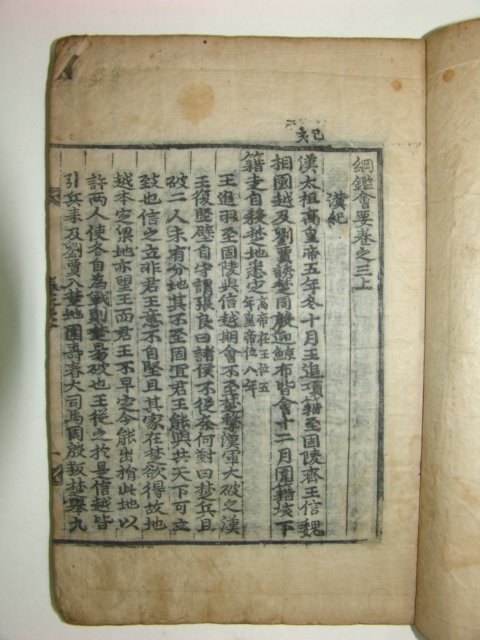 己亥
綱鑑會要卷之三上
漢紀
漢太祖高皇帝五年冬十月王追項籍至固陵齊王信魏
相國越及劉賈誘楚周殷迎鯨布皆會十二月圍籍垓下
籍走自殺楚地悉定高帝在王位五年皇帝位八年
王追羽至固陵與信越期會不至楚擊漢軍大破之漢
王復堅壁自守謂張良曰諸侯不從奈何對曰楚兵且
破二人未有分地其不至固宜君王能與共天下可立
致也信之立非君王意不自堅且其家在楚欲得故地
越本定梁地亦望王而君王不早定今能出捐此地以
許兩人使各自爲戰則楚易破也王從之於是信越皆
引兵來及劉賈入楚地圍壽春大司馬周殷叛楚擧九